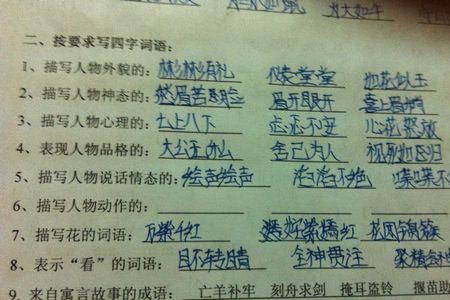 二、按要求写四字词语:
1、描写人物外貌的:彬彬有礼 仪表堂堂 如花似玉
2、描写人物神态的:愁眉苦脸 眉开眼 喜上眉梢
3、描写人物心理的:七上八下 忐忑不安 心花怒放
4、表现人物品格的:大公无私 舍己为人 视死如归
5、描写人物说话情态的:绘声绘声 滔滔不绝 喋喋不
6、描写人物动作的:
7、描写花的词语:万紫千红 紫嫣红 花团锦簇
8、表示“看”的词语:目不转睛 全神贯注 聚精会神
9.来自寓言故事的成语:亡羊补牢 刻舟求剑 掩耳盗铃 揠苗助